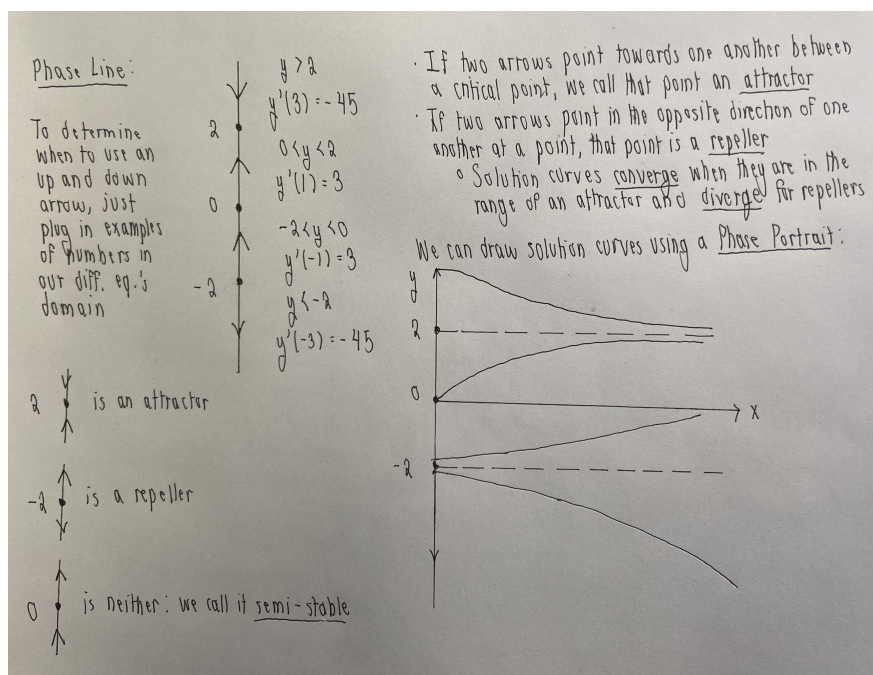 Phase Line:
To determine
when to use an
up and down
arrow, just
plug in examples
of numbers in
our diff. eq.'s
domain
2
0
-2
y > 2
y'(3) = -45
0 < y < 2
y'(1) = 3
-2 < y < 0
y'(-1) = 3
y < -2
y'(-3) = -45
2 is an attractor
-2 is a repeller
0 is neither: we call it semi-stable
· If two arrows point towards one another between
a critical point, we call that point an attractor
· If two arrows point in the opposite direction of one
another at a point, that point is a repeller
° Solution curves converge when they are in the
range of an attractor and diverge for repellers
We can draw solution curves using a Phase Portrait:
y
2
0
x
-2